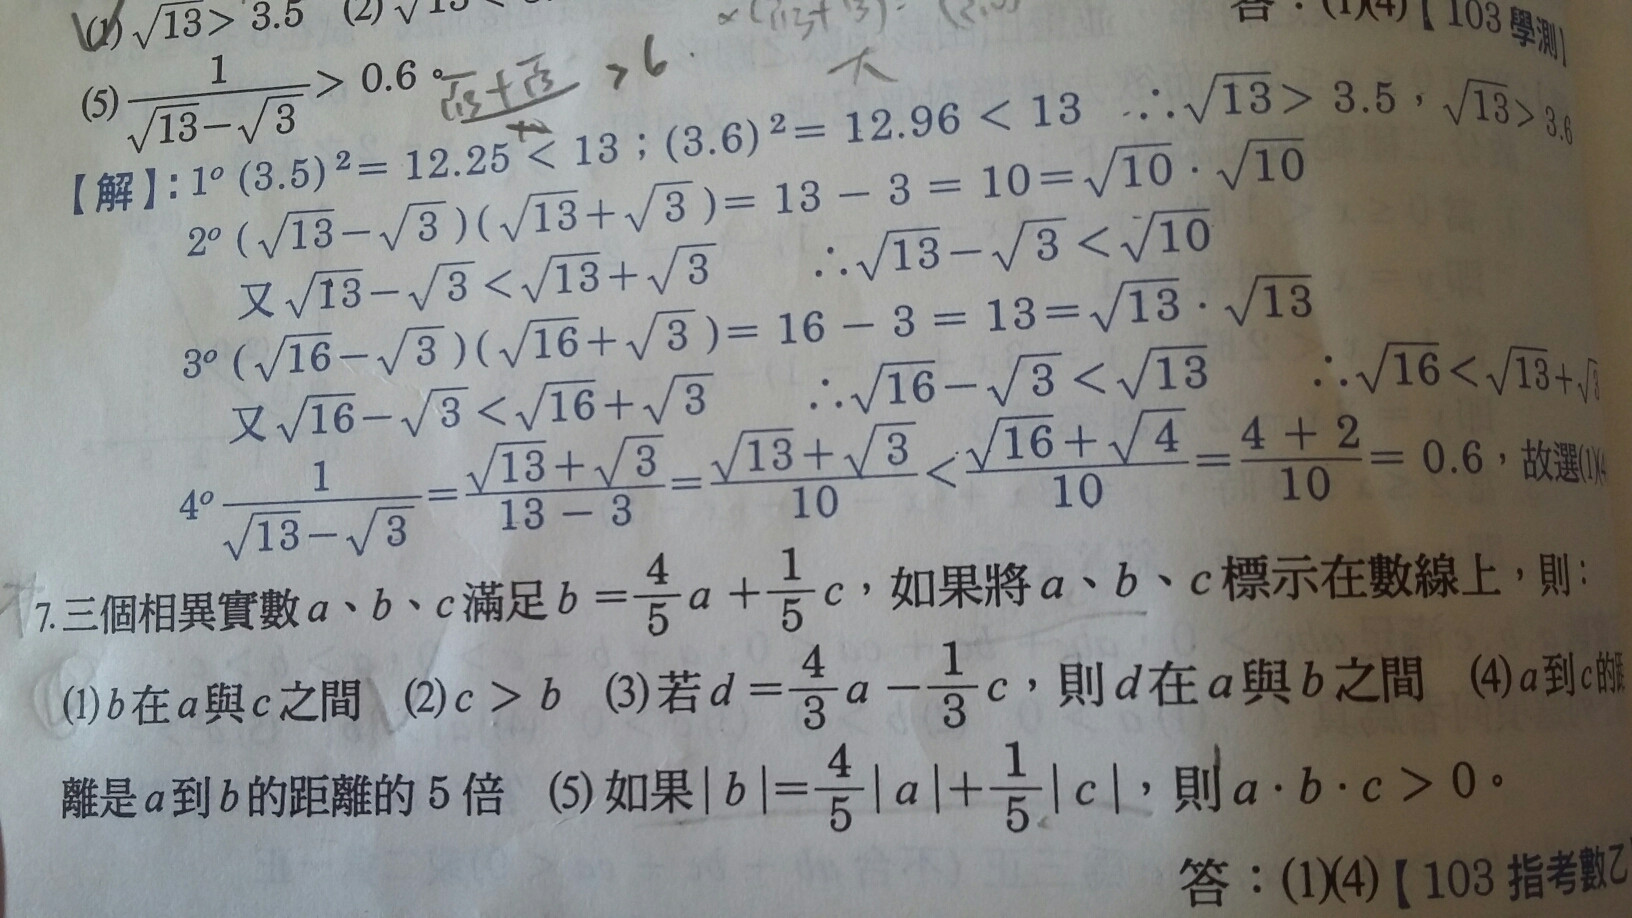 (1) √13 > 3.5 (2) √13 < 答：(1)(4)【103 學測】
(5) 1/(√13−√3) > 0.6。 (√13+√3)/10 > 6.
【解】：1° (3.5)² = 12.25 < 13；(3.6)² = 12.96 < 13 ∴√13 > 3.5，√13 > 3.6
2° (√13−√3)(√13+√3) = 13 − 3 = 10 = √10 · √10
又√13−√3 < √13+√3 ∴√13−√3 < √10
3° (√16−√3)(√16+√3) = 16 − 3 = 13 = √13 · √13
又√16−√3 < √16+√3 ∴√16−√3 < √13 ∴√16 < √13+√3
4° 1/(√13−√3) = (√13+√3)/(13 − 3) = (√13+√3)/10 < (√16+√4)/10 = (4 + 2)/10 = 0.6，故選(1)(4
7. 三個相異實數 a、b、c 滿足 b = 4/5 a + 1/5 c，如果將 a、b、c 標示在數線上，則：
(1) b 在 a 與 c 之間 (2) c > b (3) 若 d = 4/3 a − 1/3 c，則 d 在 a 與 b 之間 (4) a 到 c 的距
離是 a 到 b 的距離的 5 倍 (5) 如果 | b | = 4/5 | a | + 1/5 | c |，則 a · b · c > 0。
答：(1)(4)【103 指考數乙